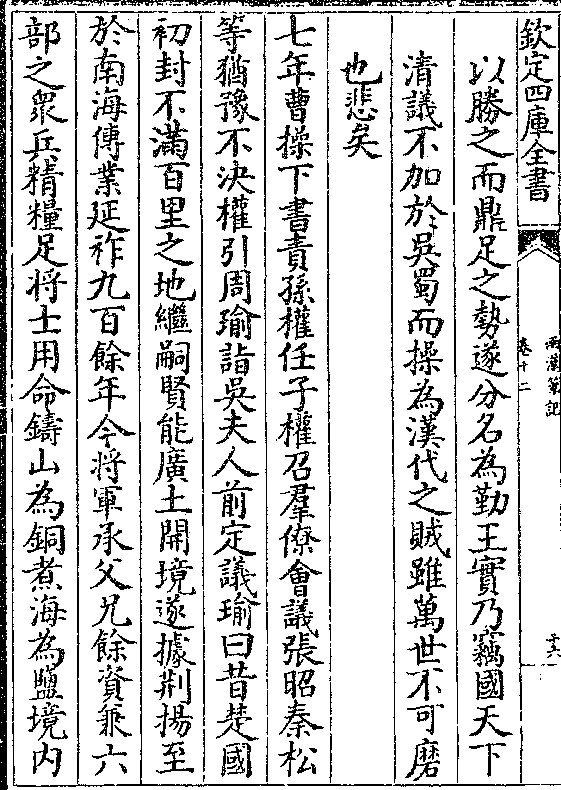 欽定四庫全書
兩漢筆記
卷十二
十六
以勝之而鼎足之勢遂分名為勤王實乃竊國天下
清議不加於吳蜀而操為漢代之賊雖萬世不可磨
也悲矣
七年曹操下書責孫權任子權召羣僚會議張昭秦松
等猶豫不決權引周瑜詣吳夫人前定議瑜曰昔楚國
初封不滿百里之地繼嗣賢能廣土開境遂據荆揚至
於南海傳業延祚九百餘年今將軍承父兄餘資兼六
部之衆兵精糧足将士用命鑄山為銅煮海為鹽境内